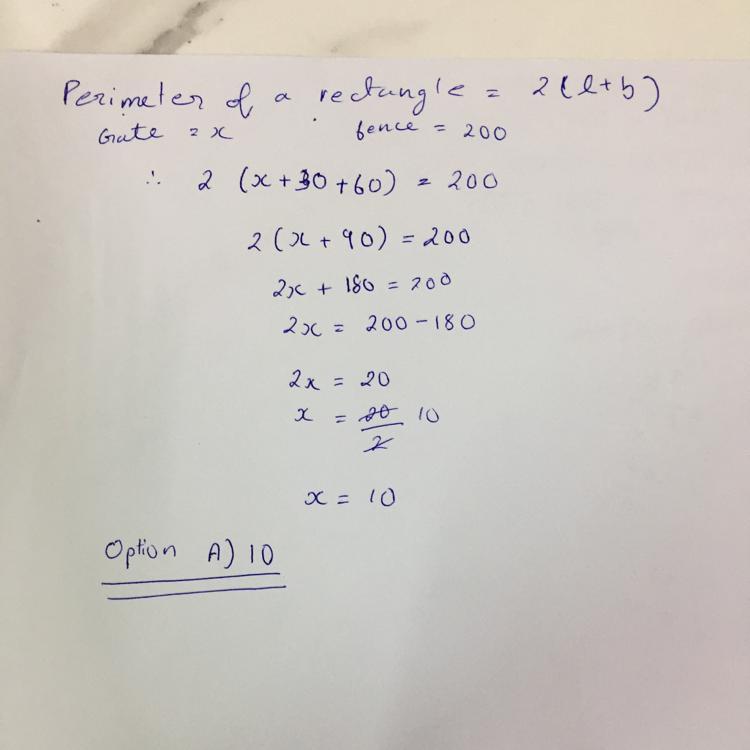 Perimeter of a rectangle = 2(l+b)
Gate = x fence = 200
∴ 2 (x+30+60) = 200
2(x + 90) = 200
2x + 180 = 200
2x = 200-180
2x = 20
x = 20/2 10
x = 10
Option A) 10